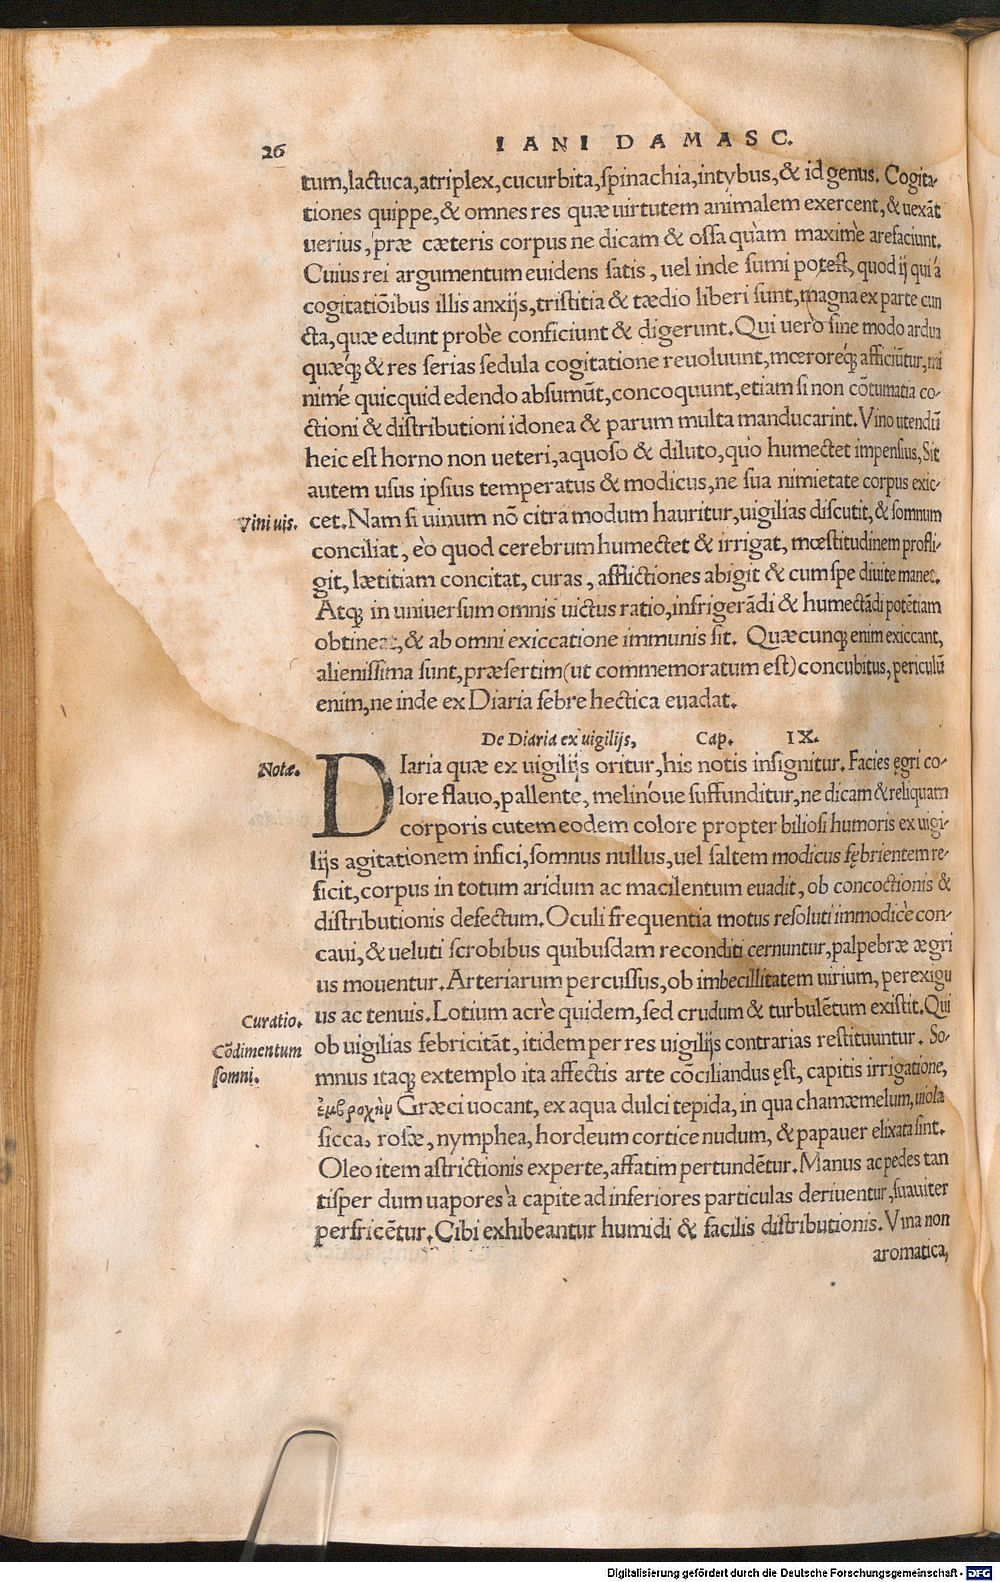 26
IANI DAMASC.
tum, lactuca, atriplex, cucurbita, spinachia, intybus, & id genus. Cogita-
tiones quippe, & omnes res quæ uirtutem animalem exercent, & uexãt
uerius, præ cæteris corpus ne dicam & ossa quàm maximè arefaciunt.
Cuius rei argumentum euidens satis, uel inde sumi potest, quod ij qui á
cogitatiõibus illis anxijs, tristitia & tædio liberi sunt, magna ex parte cun
cta, quæ edunt probè conficiunt & digerunt. Qui uerò sine modo ardua
quæq́; & res serias sedula cogitatione reuoluunt, mœroreq́; afficiũtur, mi
nimé quicquid edendo absumũt, concoquunt, etiam si non cõtumatia co-
ctioni & distributioni idonea & parum multa manducarint. Vino utendũ
heic est horno non ueteri, aquoso & diluto, quò humectet impensius, Sit
autem usus ipsius temperatus & modicus, ne sua nimietate corpus exic-
Vini uis.
cet. Nam si uinum nõ citra modum hauritur, uigilias discutit, & somnum
conciliat, eò quod cerebrum humectet & irrigat, mœstitudinem profli-
git, lætitiam concitat, curas, afflictiones abigit & cum spe diuite manet.
Atq; in uniuersum omnis uictus ratio, infrigerãdi & humectãdi potẽtiam
obtineat, & ab omni exiccatione immunis sit. Quæcunq; enim exiccant,
alienissima sunt, præsertim (ut commemoratum est) concubitus, periculũ
enim, ne inde ex Diaria febre hectica euadat.
De Diaria ex uigilijs, Cap. IX.
Notæ.
DIaria quæ ex uigilijs oritur, his notis insignitur. Facies ęgri co-
lore flauo, pallente, melinóue suffunditur, ne dicam & reliquam
corporis cutem eodem colore propter biliosi humoris ex uigi-
lijs agitationem infici, somnus nullus, uel saltem modicus fębrientem re-
ficit, corpus in totum aridum ac macilentum euadit, ob concoctionis &
distributionis defectum. Oculi frequentia motus resoluti immodicè con-
caui, & ueluti scrobibus quibusdam reconditi cernuntur, palpebræ ægri
us mouentur. Arteriarum percussus, ob imbecillitatem uirium, perexigu
us ac tenuis. Lotium acrè quidem, sed crudum & turbulẽtum existit. Qui
Curatio.
ob uigilias febricitãt, itidem per res uigilijs contrarias restituuntur. So-
Cõdimentum
somni.
mnus itaq; extemplo ita affectis arte cõciliandus ęst, capitis irrigatione,
ἐμβροχὴν Græci uocant, ex aqua dulci tepida, in qua chamæmelum, uiola
sicca, rosæ, nymphea, hordeum cortice nudum, & papauer elixata sint.
Oleo item astrictionis experte, affatim pertundẽtur. Manus ac pedes tan
tisper dum uapores à capite ad inferiores particulas deriuentur, suauiter
perfricẽtur. Cibi exhibeantur humidi & facilis distributionis. Vina non
aromatica,
Digitalisierung gefördert durch die Deutsche Forschungsgemeinschaft - DFG